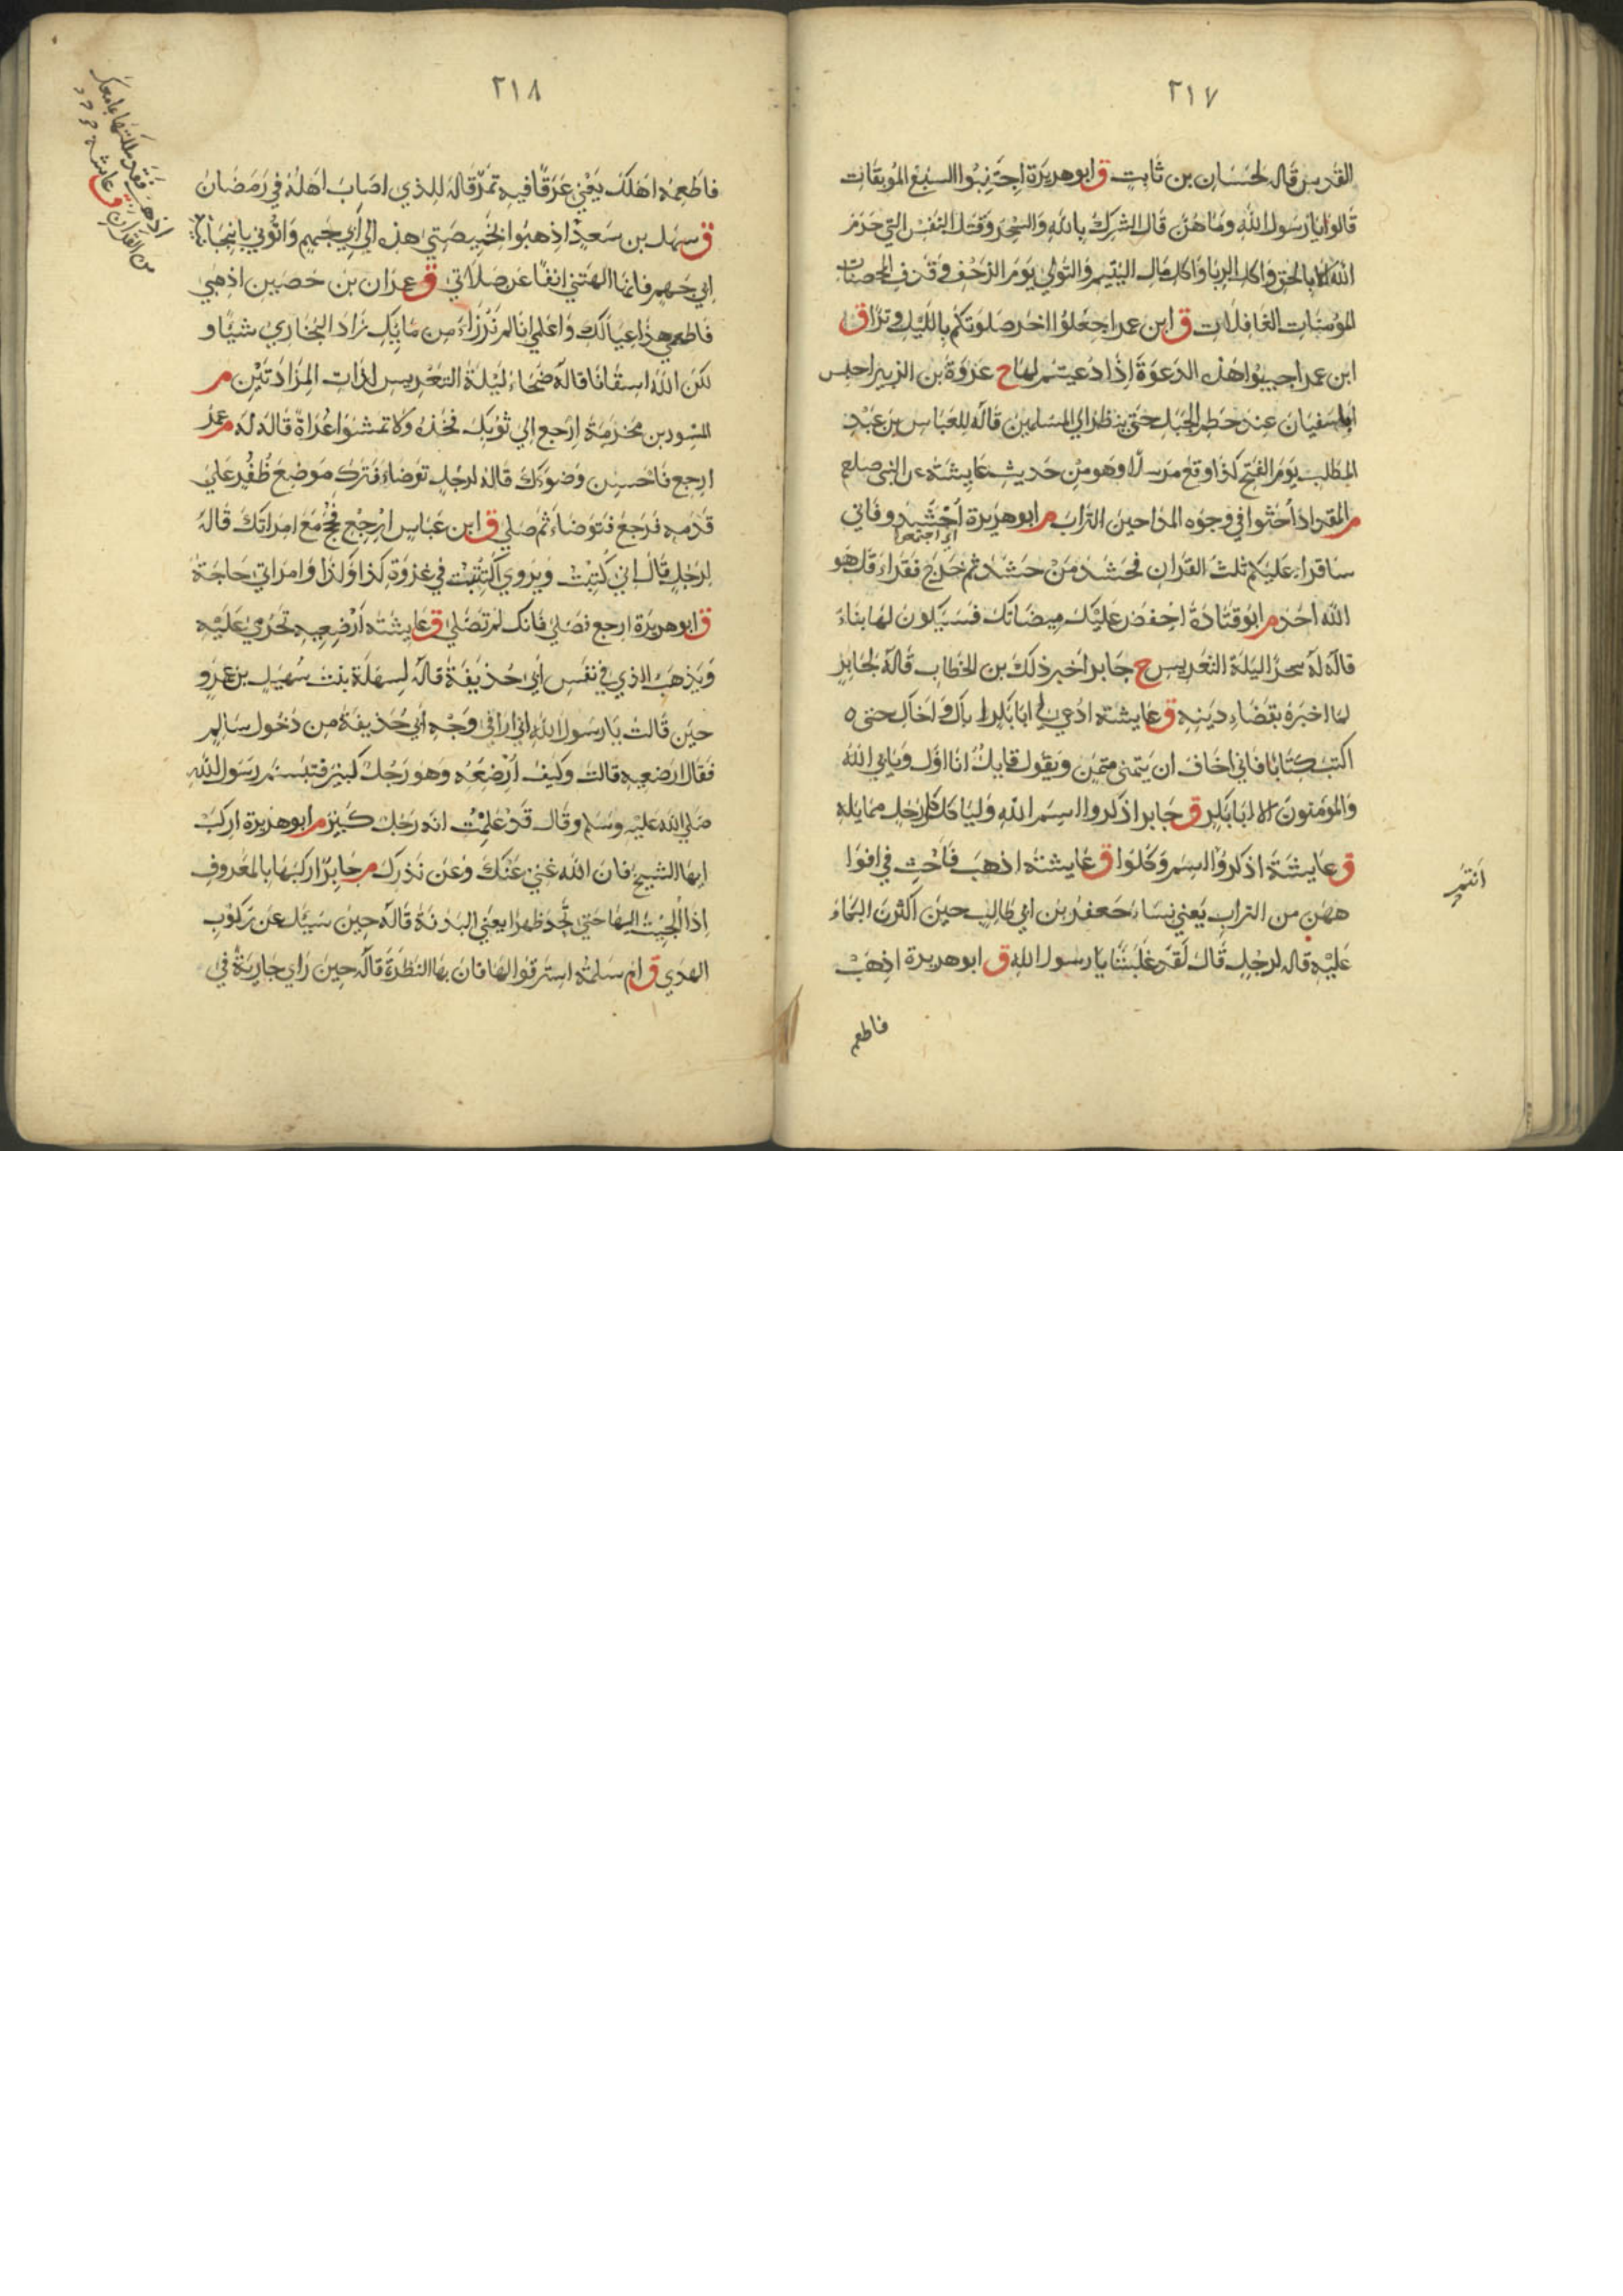 ٢١٧
القدس قاله لحسان بن ثابت ق ابو هريرة اجتنبوا السبع الموبقات
قالوا يا رسول الله وما هن قال الشرك بالله والسحر وقتل النفس التي حرم
الله الا بالحق واكل الربا واكل مال اليتيم والتولي يوم الزحف وقذف المحصنات
المؤمنات الغافلات ق ابن عمر اجعلوا اخر صلوتكم بالليل وترا ق
ابن عمر اجيبوا هذه الدعوة اذا دعيتم لها خ عروة بن الزبير احبس
ابا سفيان عند حطم الجبل حتى ينظر الي المسلمين قاله للعباس بن عبد
المطلب يوم الفتح كذا وقع مرسلا وهو من حديث عايشة عن النبي صلعم
م المقداد احثوا في وجوه المداحين التراب م ابو هريرة احشدوا فاني
اي اجتمعوا
ساقراء عليكم ثلث القران فحشد من حشد ثم خرج فقراء قل هو
الله احد م ابو قتادة احفظ عليك ميضاتك فسيكون لها بناء
قاله له سحر ليلة التعريس خ جابر اخبر ذلك بن الخطاب قاله لجابر
لما اخبره بقضاء دينه ق عايشة ادعي لي ابا بكر اباك واخاك حتى
اكتب كتابا فاني اخاف ان يتمنى متمن ويقول قايل انا اولى ويابي الله
والمؤمنون الا ابا بكر ق جابر اذكروا اسم الله ولياكل كل رجل مما يليه
ق عايشة اذكروا اسم وكلوا ق عايشة اذهب فاحث في افوا
انتم
ههن من التراب يعني نساء جعفر بن ابي طالب حين اكثرن البكاء
عليه قاله لرجل قال لقد غلبننا يا رسول الله ق ابو هريرة اذهب
فاطعمه
٢١٨
فاطعمه اهلك يعني عرقا فيه تمر قاله للذي اصاب اهله في رمضان
ق سهل بن سعد اذهبوا بخميصتي هذه الي ابي جهيم واتوني بانبجانية
ابي جهم فانها الهتني انفا عن صلاتي ق عمران بن حصين اذهبي
فاطعمي هذا عيالك واعلمي انا لم نرزاء من مايك زاد البخاري شيئا و
لكن الله اسقانا قاله ضحاء ليلة التعريس لذات المزادتين م
المسور بن مخرمة ارجع الي ثوبك فخذه ولا تمشوا عراة قاله له م عمر
ارجع فاحسن وضوءك قاله لرجل توضاء فترك موضع ظفر علي
قدمه فرجع فتوضاء ثم صلي ق ابن عباس ارجع فحج مع امراتك قاله
لرجل قال اني كتبت ويروي اكتتبت في غزوة كذا وكذا وامراتي حاجة
ق ابو هريرة ارجع فصلي فانك لم تصلي ق عايشة ارضعيه تحرمي عليه
ويذهب الذي في نفس ابي حذيفة قاله لسهلة بنت سهيل بن عمرو
حين قالت يا رسول الله اني اراي في وجه ابي حذيفة من دخول سالم
فقال ارضعيه قالت وكيف ارضعه وهو رجل كبير فتبسم رسول الله
صلي الله عليه وسلم وقال قد علمت انه رجل كبير م ابو هريرة اركب
ايها الشيخ فان الله غني عنك وعن نذرك م جابر اركبها بالمعروف
اذا الجيت اليها حتي تجد ظهرا يعني البدنة قاله حين سيل عن ركوب
الهدي ق ام سلمة استرقوا لها فان بها النظرة قاله حين راي جارية في
اذهب فقد ملكتها بما معك
من القران ق عايشة